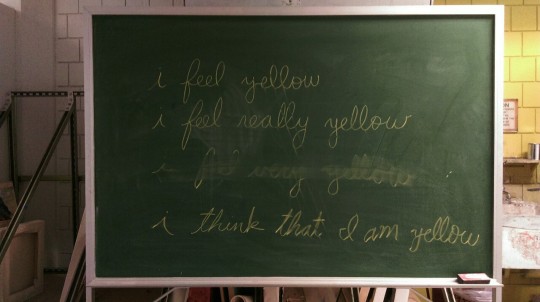 i feel yellow
i feel really yellow
i feel very yellow
i think that I am yellow